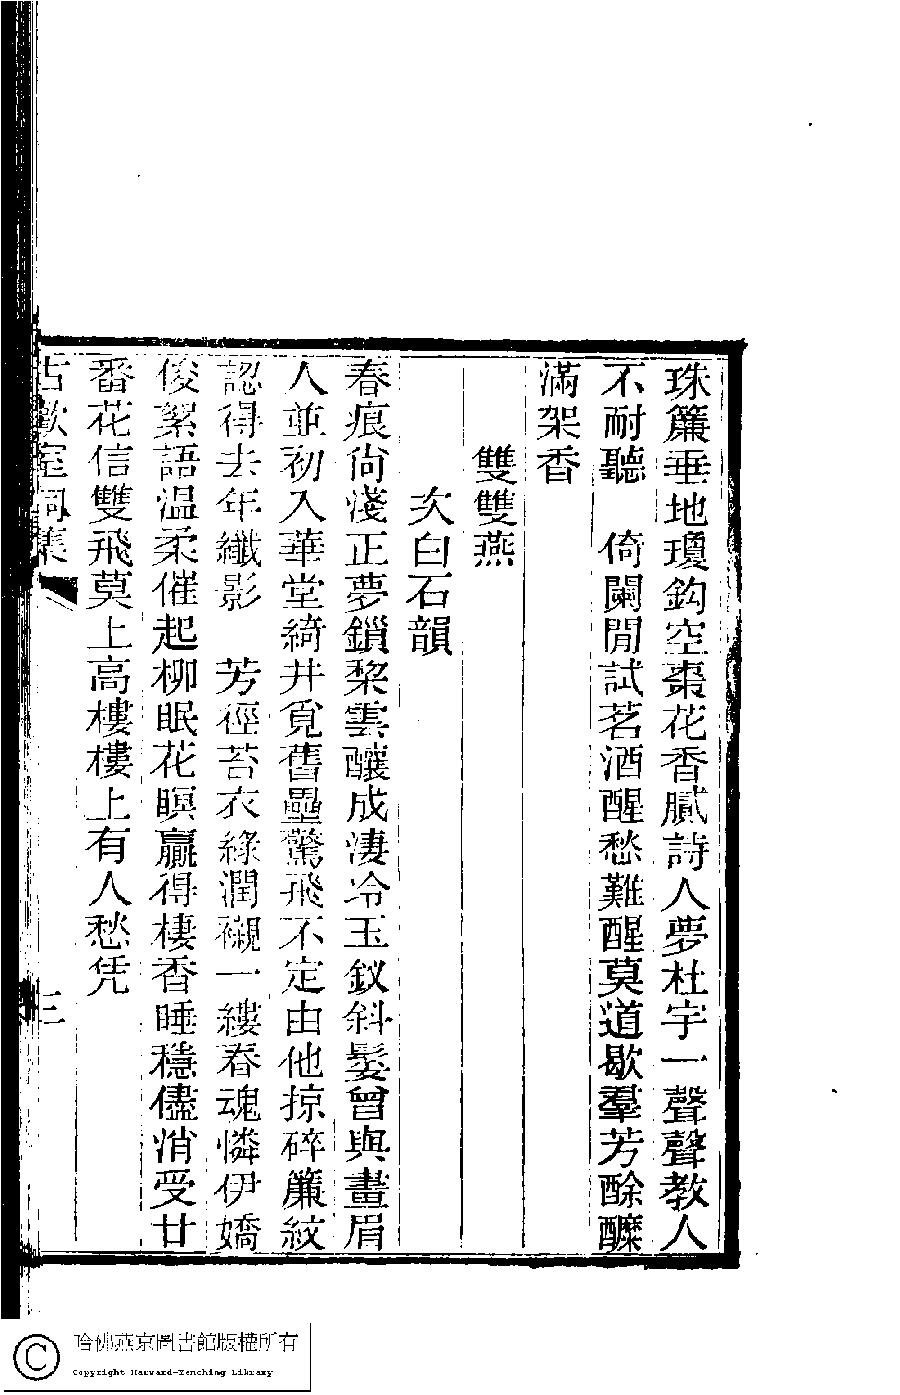 珠簾垂地瓊鈎空棗花香膩詩人夢杜宇一聲聲教人
不耐聽　倚闌閒試茗酒醒愁難醒莫道歇羣芳酴醾
滿架香
雙雙燕
次白石韻
春痕尙淺正夢鎖棃雲釀成淒冷玉釵斜鬌曾與畫眉
人並初入華堂綺井覓舊壘驚飛不定由他掠碎簾紋
認得去年纖影　芳徑苔衣綠潤襯一縷春魂憐伊嬌
俊絮語温柔催起柳眠花瞑贏得棲香睡穩儘消受廿
番花信雙飛莫上高樓樓上有人愁凭
古歡室詞集
三
哈佛燕京圖書館版權所有
Copyright Harvard-Yenching Library